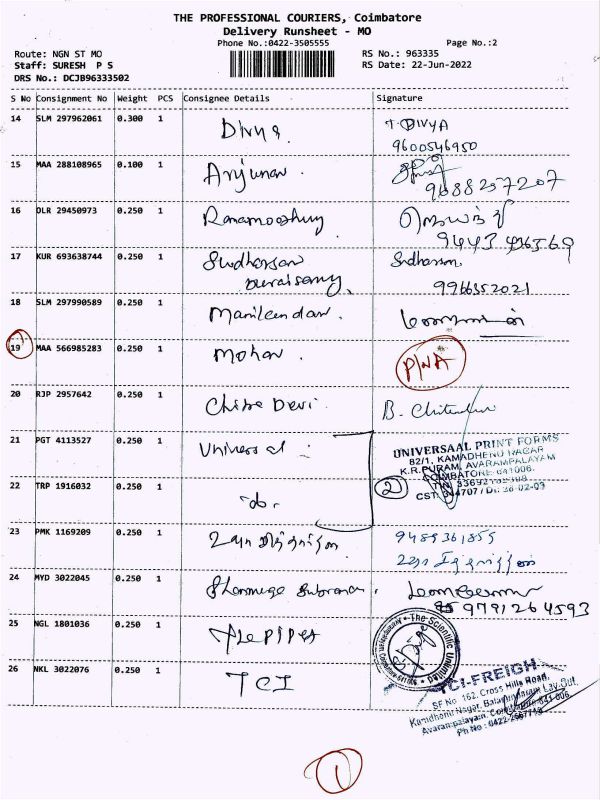 THE PROFESSIONAL COURIERS, Coimbatore
Delivery Runsheet - MO
Phone No.:0422-3505555
Page No.:2
Route: NGN ST MO
Staff: SURESH P S
DRS No.: DCJB96333502
RS No.: 963335
RS Date: 22-Jun-2022
S No Consignment No Weight PCS Consignee Details Signature
14 SLM 297962061 0.300 1 Divya. T. DIVYA
9600546950
15 MAA 288108965 0.100 1 Arjunan. 9688257207
16 DLR 29450973 0.250 1
17 KUR 693638744 0.250 1 Sudharsan Sudharsan
Duraisamy. 9966352021
18 SLM 297990589 0.250 1 Manikandan.
19 MAA 566985283 0.250 1 Mohan. P/NA
20 RJP 2957642 0.250 1 Chitra Devi. B.
21 PGT 4113527 0.250 1 Universal UNIVERSAAL PRINT FORMS
82/1, KAMADHENU NAGAR
K.R.PURAM, AVARAMPALAYAM
COIMBATORE-641006.
22 TRP 1916032 0.250 1 -do- 2
23 PMK 1169209 0.250 1 9485361855
24 MYD 3022045 0.250 1 9791264593
25 NGL 1801036 0.250 1 The Scientific Unlimited
26 NKL 3022076 0.250 1 TCI TCI-FREIGH
SF No 162, Cross Hills Road,
1